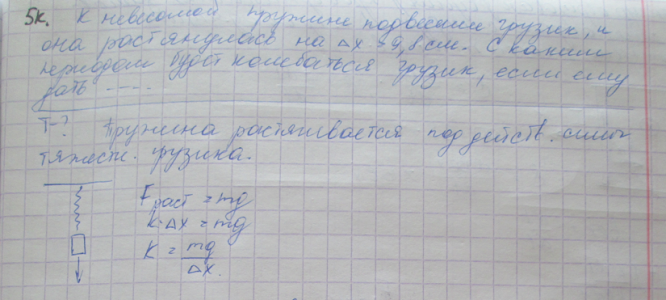 5к. К невесомой пружине подвесили грузик, и
она растянулась на Δx = 9,8 см. С каким
периодом будет колебаться грузик, если ему
дать ----
T-? Пружина растягивается под действ. силы
тяжести. грузика.
Fраст = mg
k·Δx = mg
K = mg
Δx.